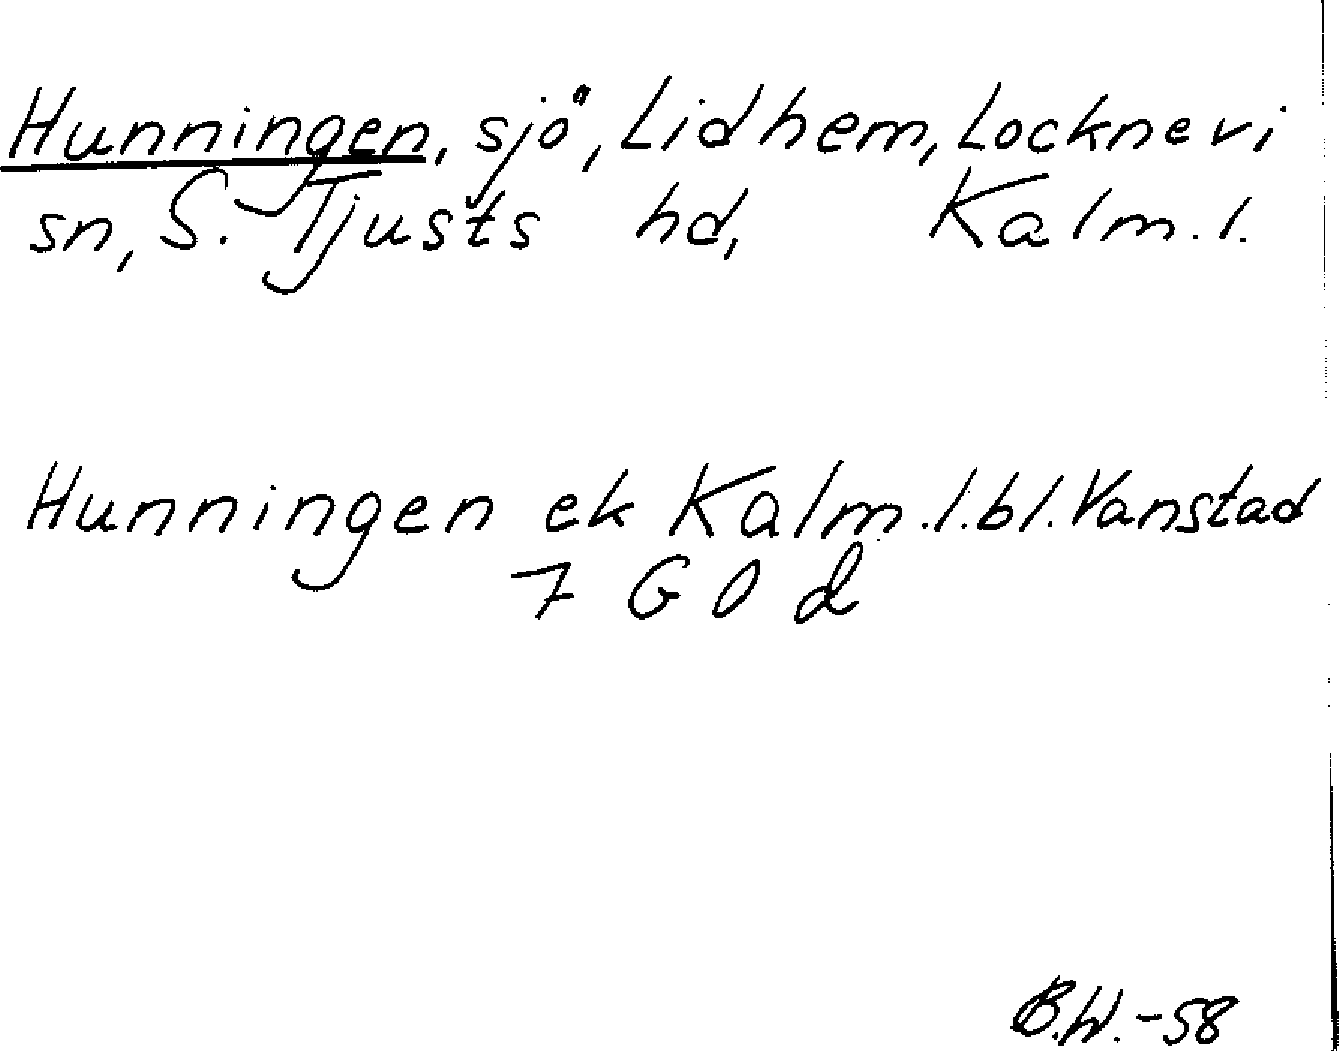 Hunningen, sjö, Lidhem, Locknevi
sn, S. Tjusts hd, Kalm. l.
Hunningen ek Kalm. l. bl. Vanstad
7 G O d
B.W. -58